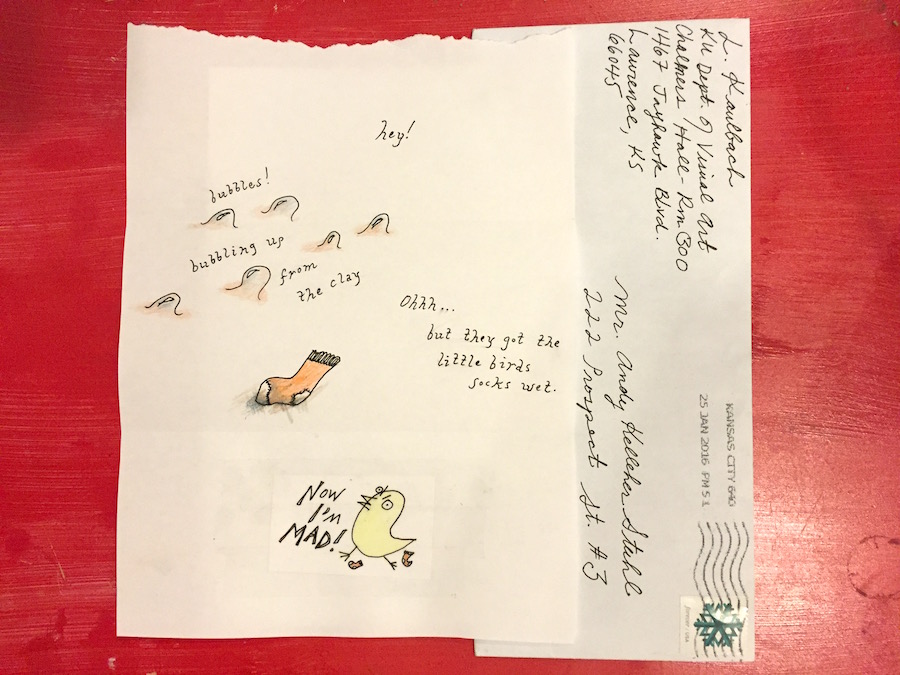 hey!
bubbles!
bubbling up
from
the clay
Ohhh...
but they got the
little birds
socks wet.
NOW
I'm
MAD!
L. Kaulbach
KU Dept. of Visual Art
Chalmers Hall - Rm 300
1467 Jayhawk Blvd.
Lawrence, KS
66045
Mr. Andy Kelleher Stuhl
222 Prospect St. #3
KANSAS CITY 640
25 JAN 2016 PM 5 L